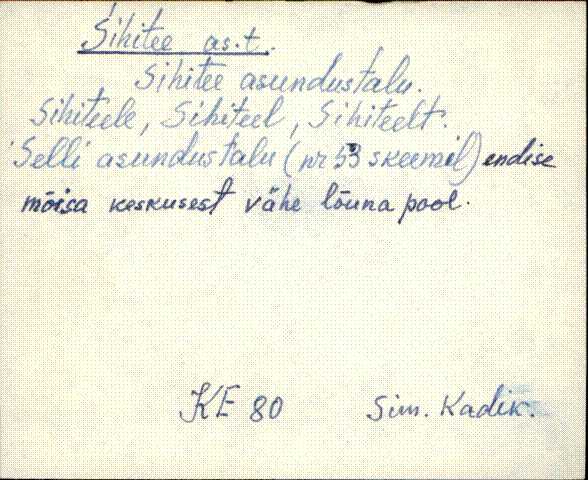 Sihitee as.t.
Sihitee asundustalu.
Sihiteele, Sihiteel, Sihiteelt.
Selli asundustalu (nr 53 skeemil) endise
mõisa keskusest vähe lõuna pool.
KE 80 Sim. Kadik.